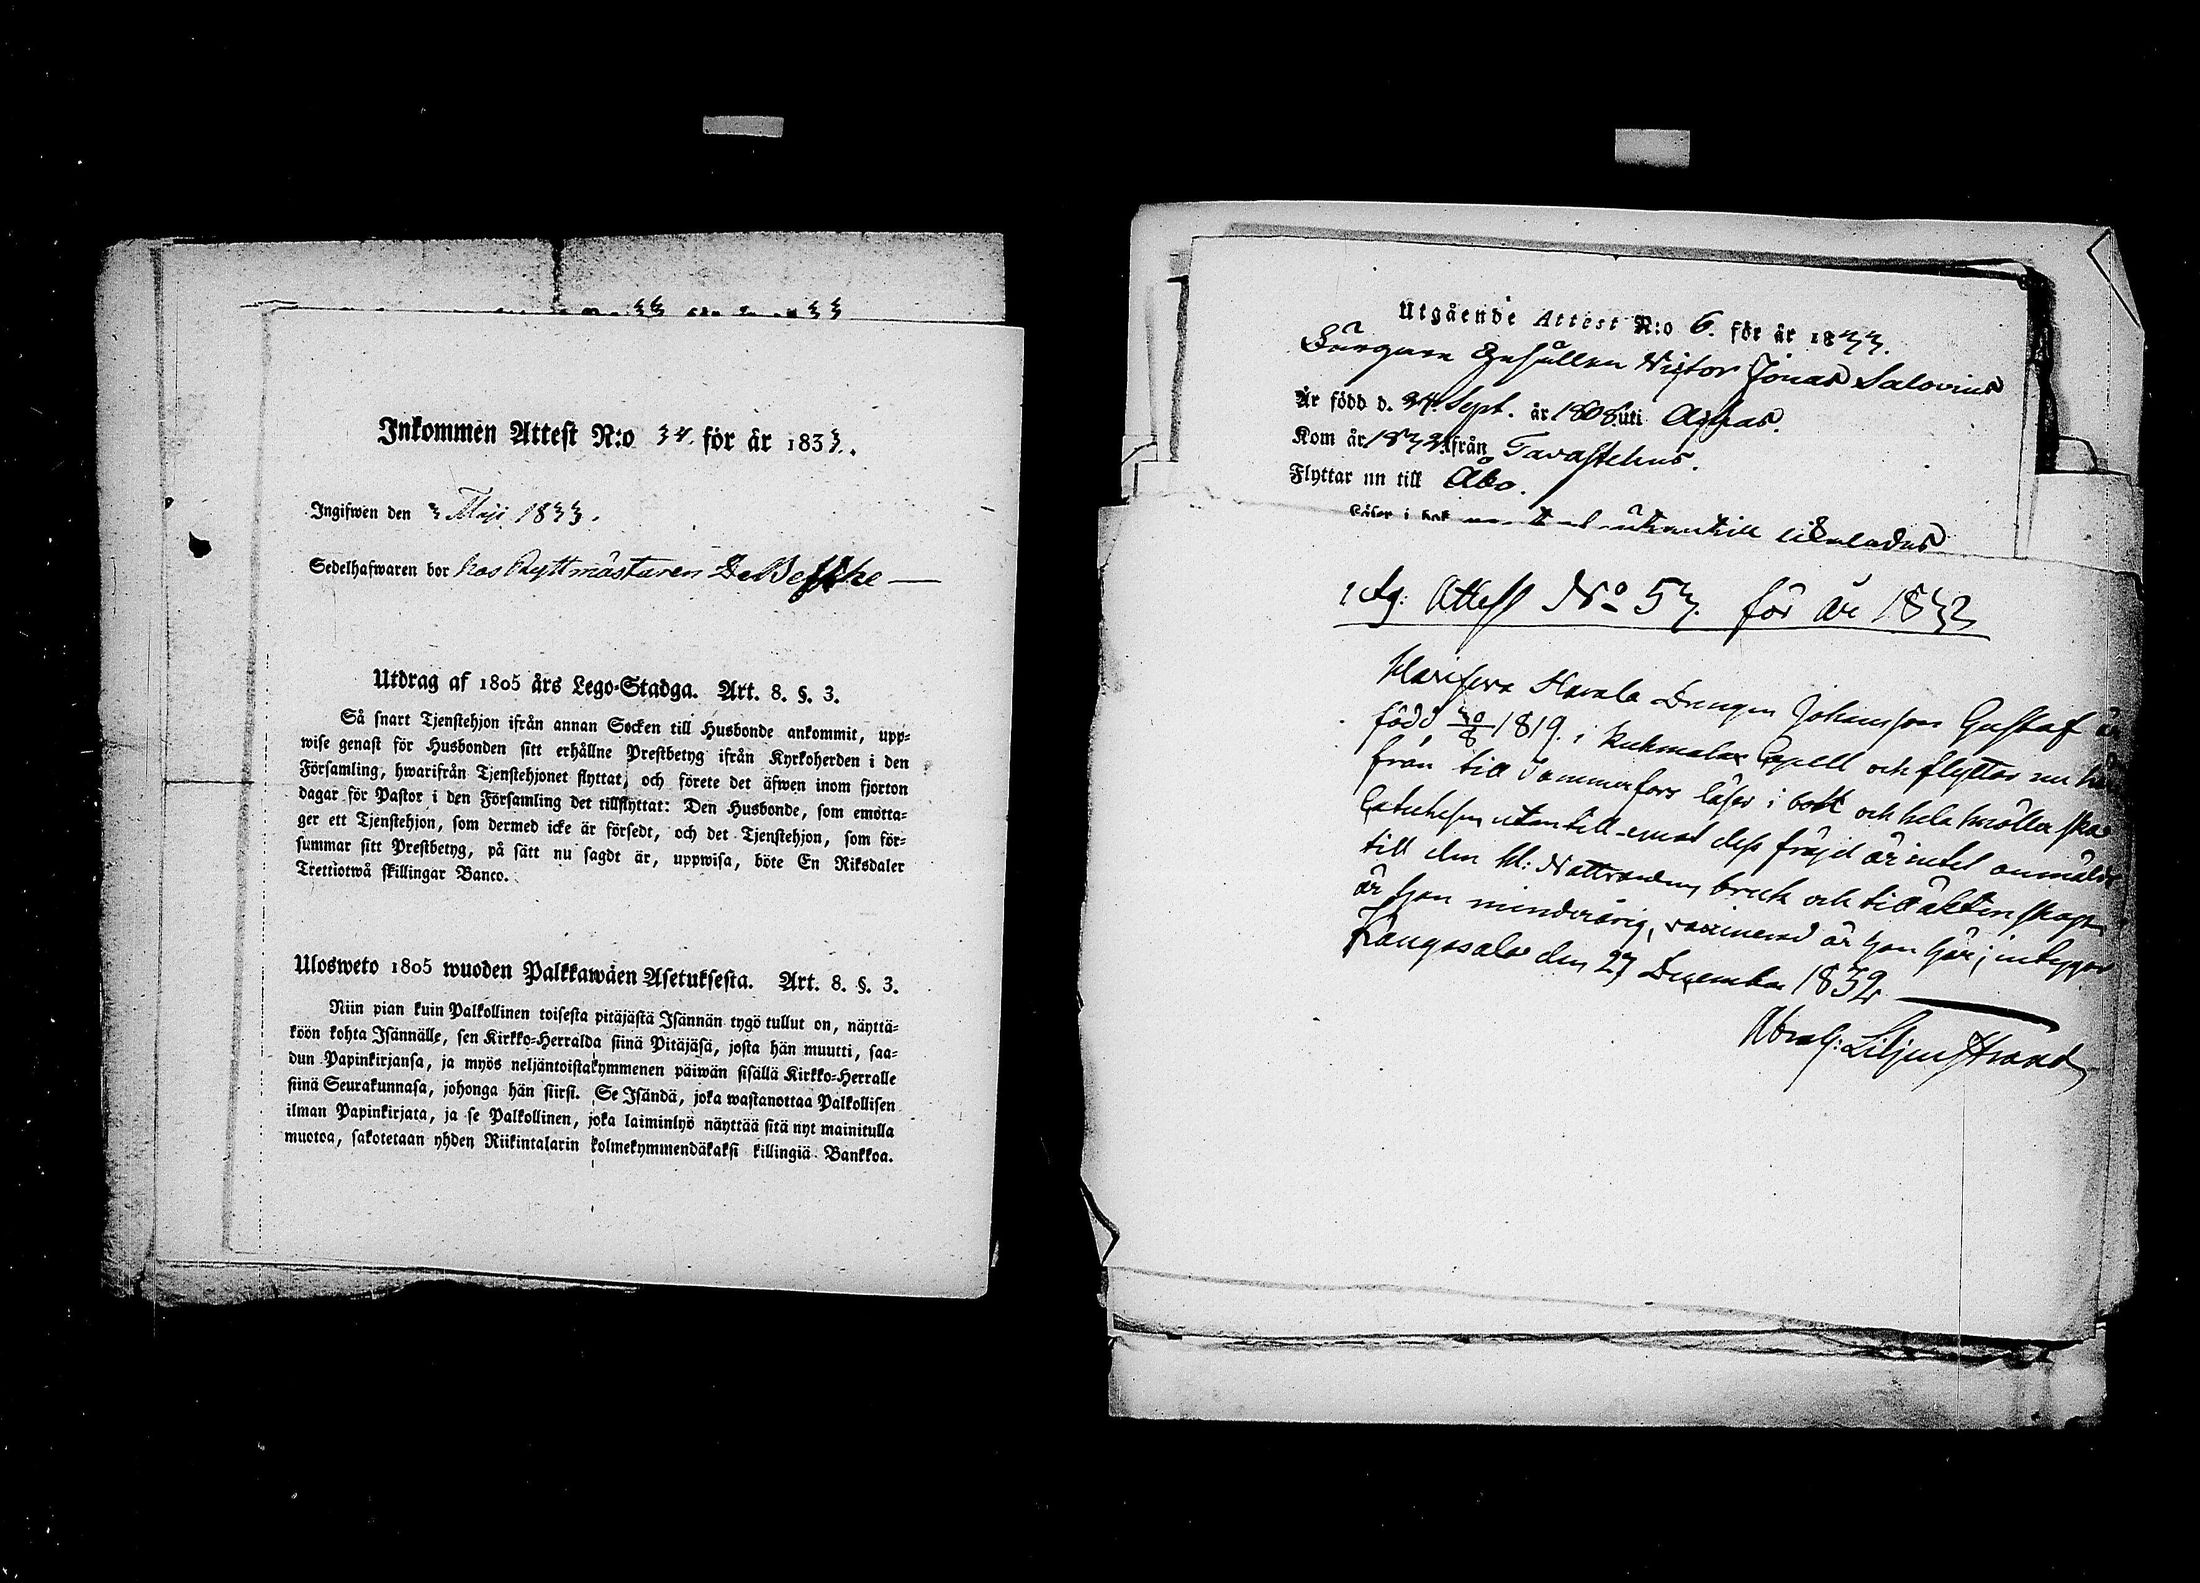 Inkommen Attest N:o 34. för år 1833.
Ingifwen den 3 Maji 1833.
Sedelhafwaren bor hos Ryttmästaren De Besche
Utdrag af 1805 års Lego-Stadga. Art. 8. §. 3.
Så snart Tjenstehjon ifrån annan Socken till Husbonde ankommit, upp-
wise genast för Husbonden sitt erhållne Prestbetyg ifrån Kyrkoherden i den
Församling, hwarifrån Tjenstehjonet flyttat, och förete det äfwen inom fjorton
dagar för Pastor i den Församling det tillflyttat: Den Husbonde, som emotta-
ger ett Tjenstehjon, som dermed icke är försedt, och det Tjenstehjon, som för-
summar sitt Prestbetyg, på sätt nu sagdt är, uppwisa, böte En Riksdaler
Trettiotwå skillingar Banco.
Ulosweto 1805 wuoden Palkkawäen Asetuksesta. Art. 8. §. 3.
Niin pian kuin Palkollinen toisesta pitäjästä Isännän tygö tullut on, näyttä-
köön kohta Isännälle, sen Kirkko-Herralda siinä Pitäjäsä, josta hän muutti, saa-
dun Papinkirjansa, ja myös neljäntoistakymmenen päiwän sisällä Kirkko-Herralle
siinä Seurakunnasa, johonga hän siirsi. Se Isändä, joka wastanottaa Palkollisen
ilman Papinkirjata, ja se Palkollinen, joka laiminlyö näyttää sitä nyt mainitulla
muotoa, sakotetaan yhden Riikintalarin kolmekymmendäkaksi killingiä Bankkoa.
Utgående Attest N:o 6. för år 1833.
Gesällen Victor Jonas Salovius
Är född d. 24. Sept. år 1808 uti
Kom år 1832 ifrån Tavastehus.
Flyttar nu till Åbo.
Läser i bok utantill likaledes
Attest No 53. för år 1832
Havala Drengen Johansson Gustaf är
född 30/8 1819. i Kuhmalax Capell och flyttar nu
från till Tammerfors läser i bok och hela
Catechesen utantill emot dess frejd är intet anmäldt
till den H: Nattvardens bruk och till äktenskap
är han minderårig, vaccinerad är han här; intygar
Kangasala den 27 December 1832
Abrah: Liljenstrand